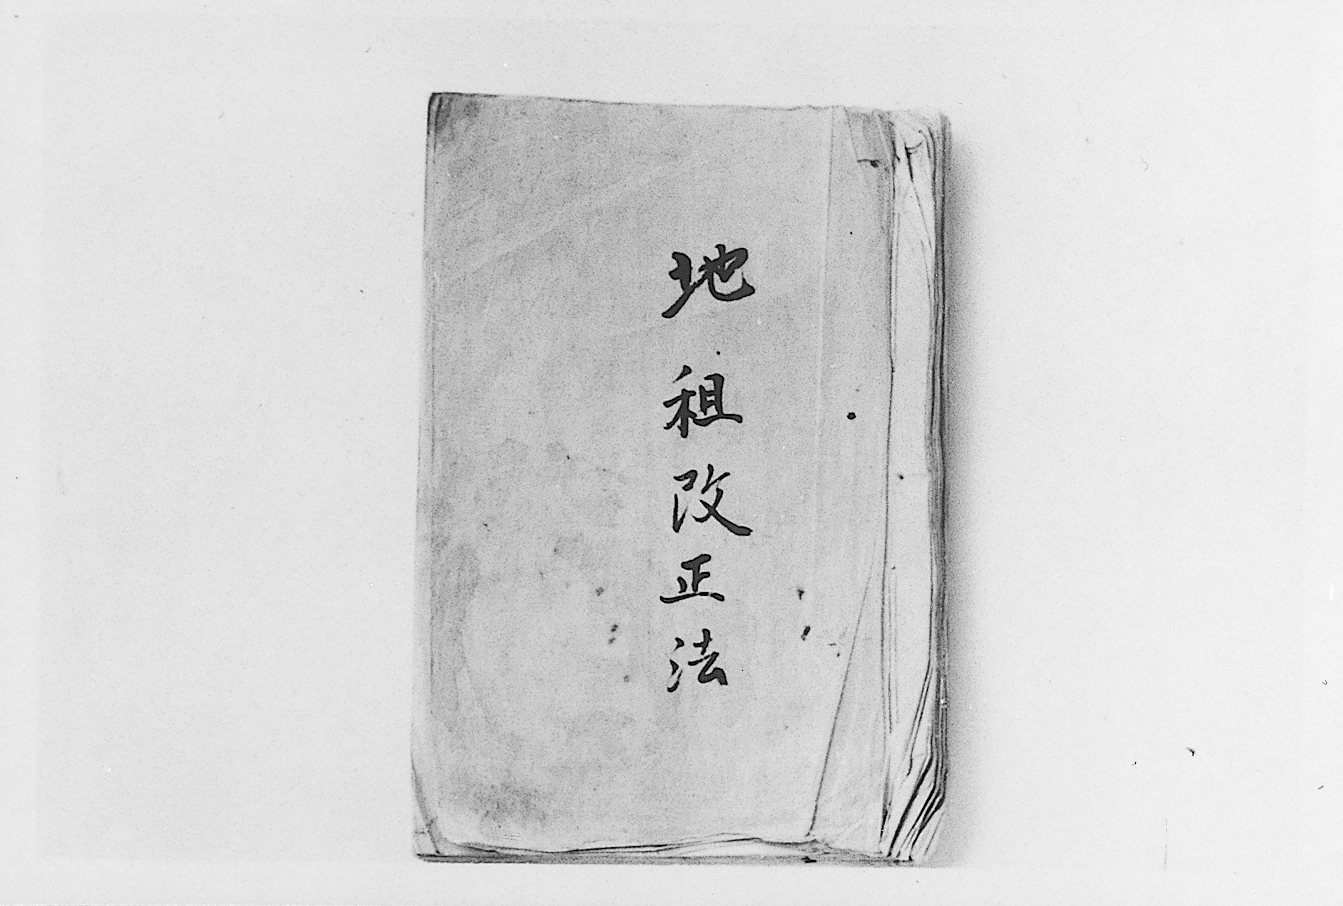 地租改正法